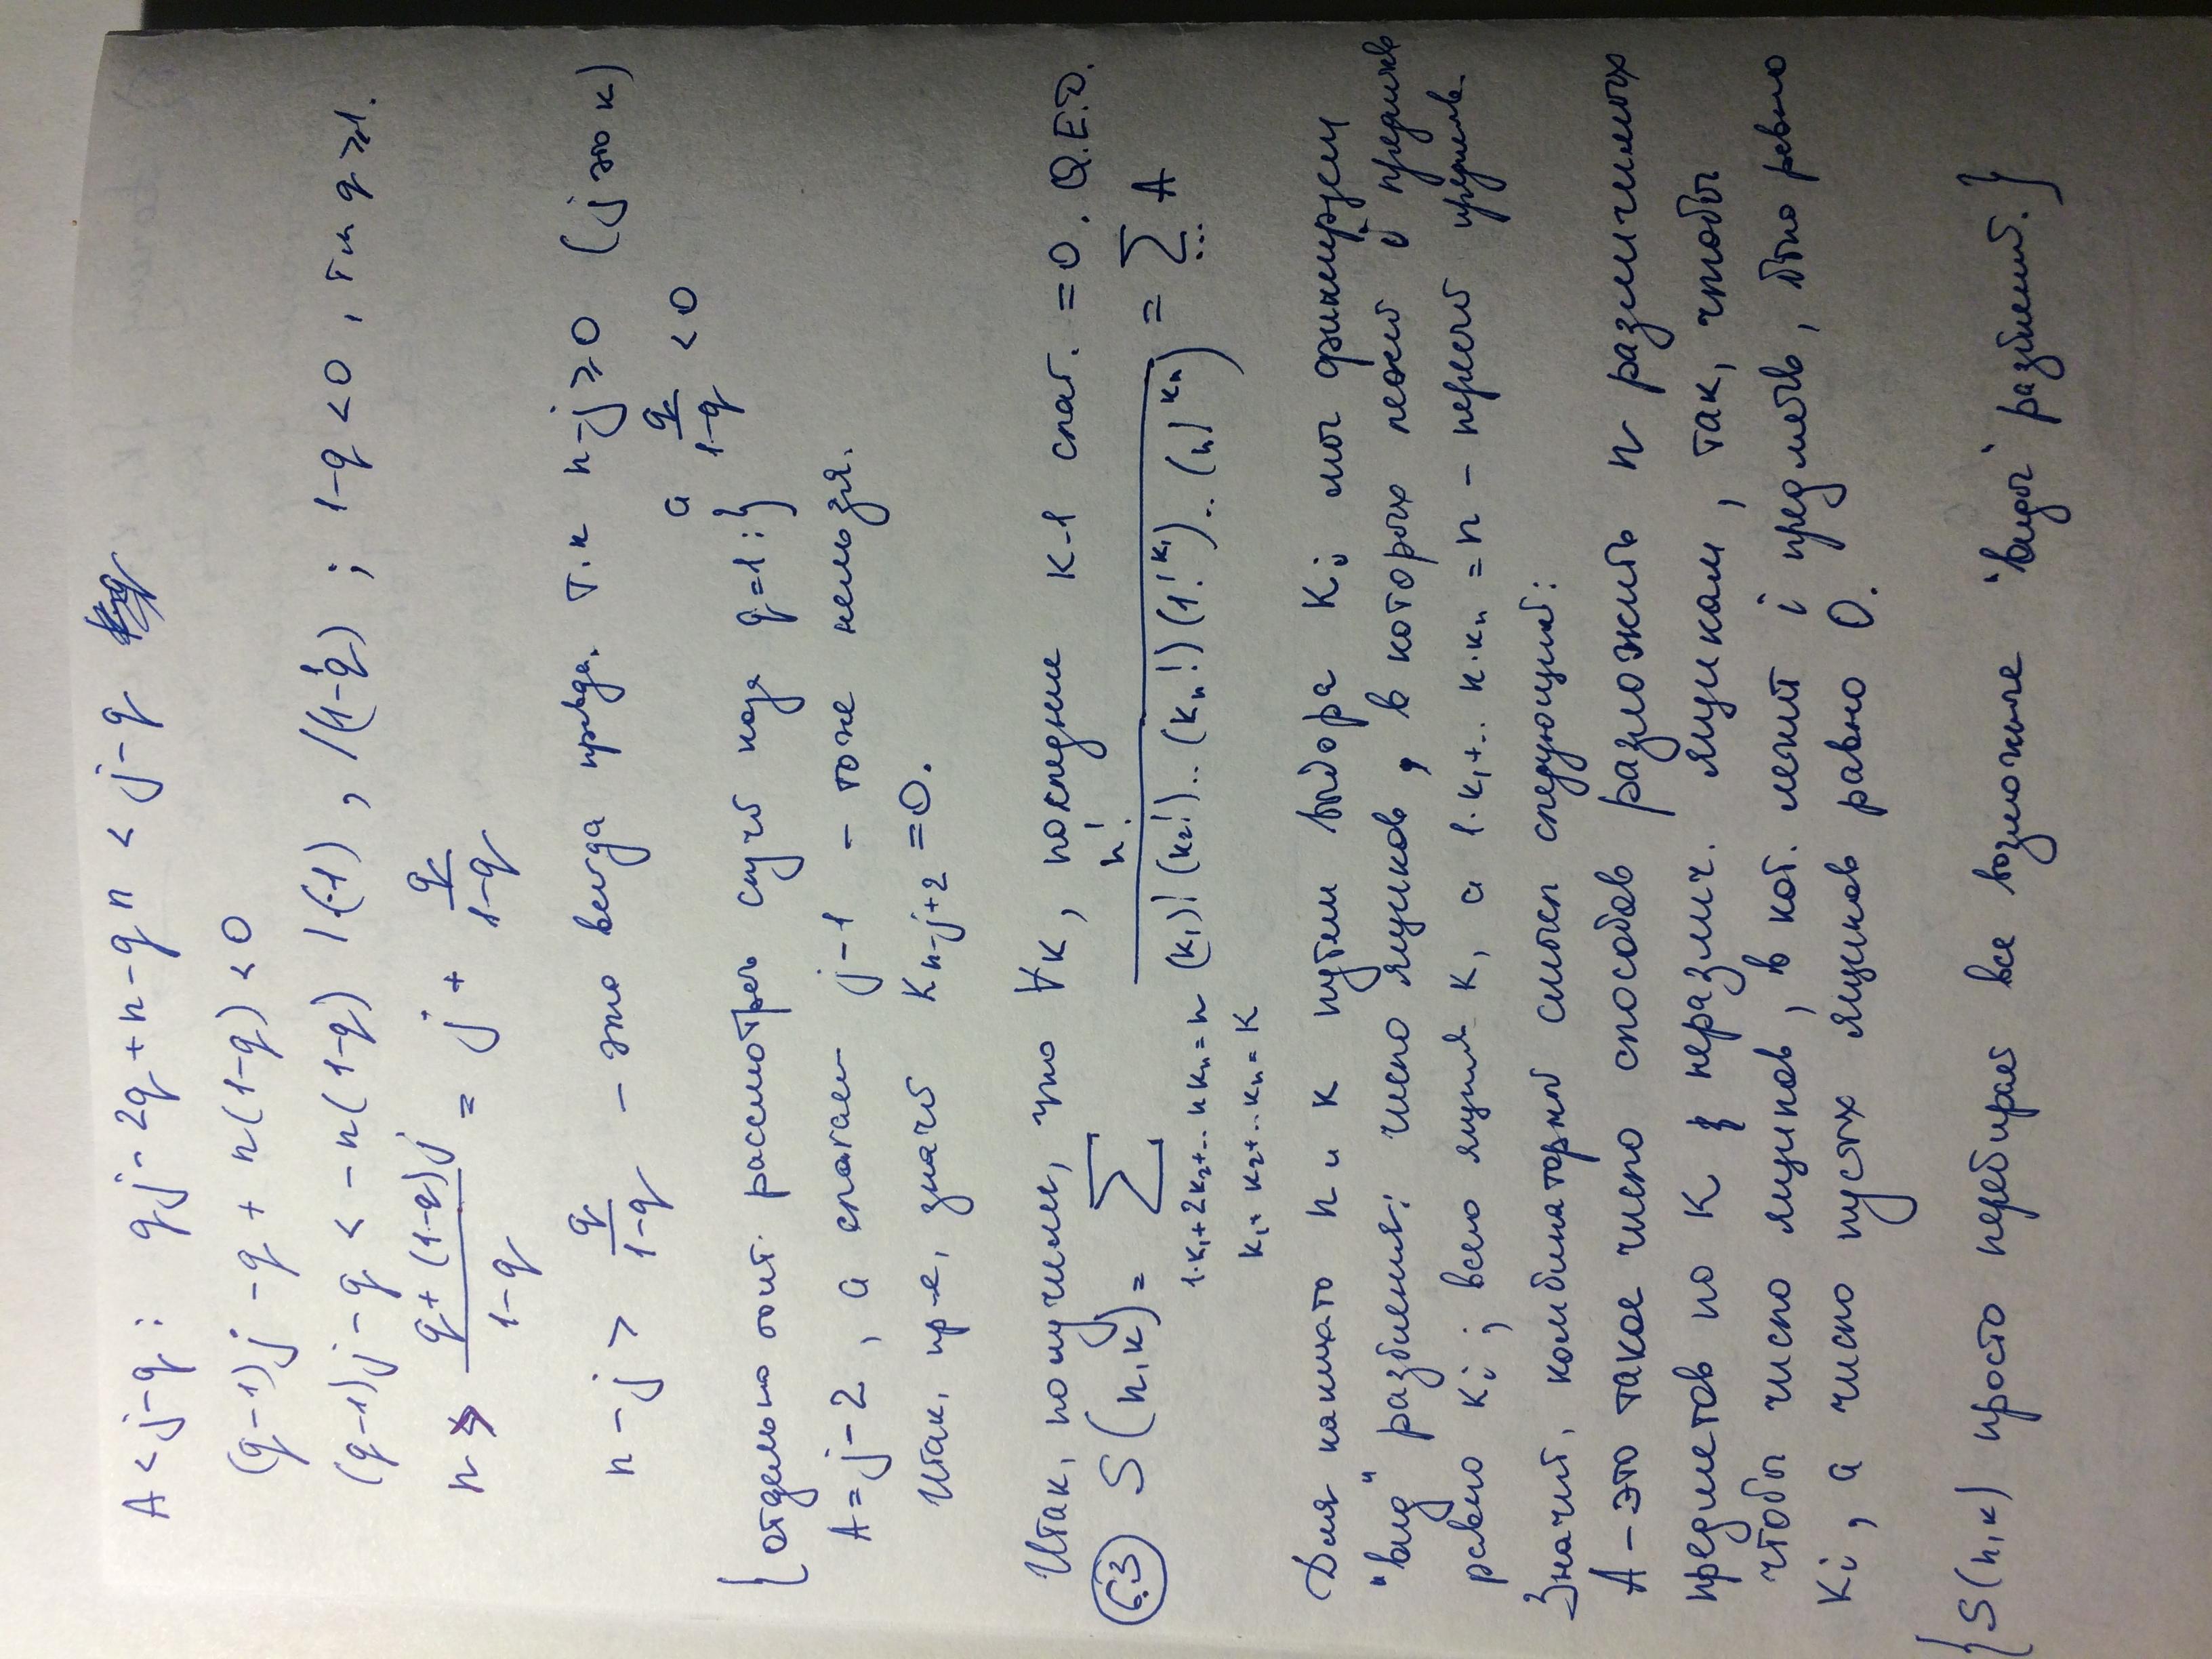 A < j-q : qj - 2q + n - qn < j-q
(q-1)j - q + n(1-q) < 0
(q-1)j - q < -n(1-q) |·(-1) , /(1-q) ; 1-q < 0 , т.к q ≥ 1.
n > \frac{q+(1-q)j}{1-q} = j + \frac{q}{1-q}
n - j > \frac{q}{1-q} - это всегда правда. Т.к n-j ≥ 0 (j это к)
а \frac{q}{1-q} < 0
{ отдельно рассмотреть случй когда q=1 : }
A = j-2 , а слагаем j-1 - тоже нельзя.
Итак, пр-е, значит K_{n-j+2} = 0.
Итак, получили, что ∀к, последние к-1 слаг. = 0. Q.E.D.
6.3 S(n,k) = ∑ \frac{n!}{(k_1)! (k_2!) .. (k_n!) (1!^{k_1}) .. (n!^{k_n})} = ∑ A
1·k_1 + 2k_2 + .. n k_n = n ...
k_1 + k_2 + .. k_n = K
Для каких-то n и к путём выбора K_i мы фиксируем
"вид" разбиения: число ящиков, в которых лежит i предметов
равно K_i ; всего ящиков K, а 1·k_1 + .. n·k_n = n - пересчёт предметов
Значит, комбинаторный смысл следующий:
А - это такое число способов разложить n различимых
предметов по K неразлич. ящикам, так, чтобы
чтобы число ящиков, в кот. лежит i предметов, было равно
K_i, а число пустых ящиков равно 0.
{ S(n,k) просто перебирает все возможные "виды" разбиений. }